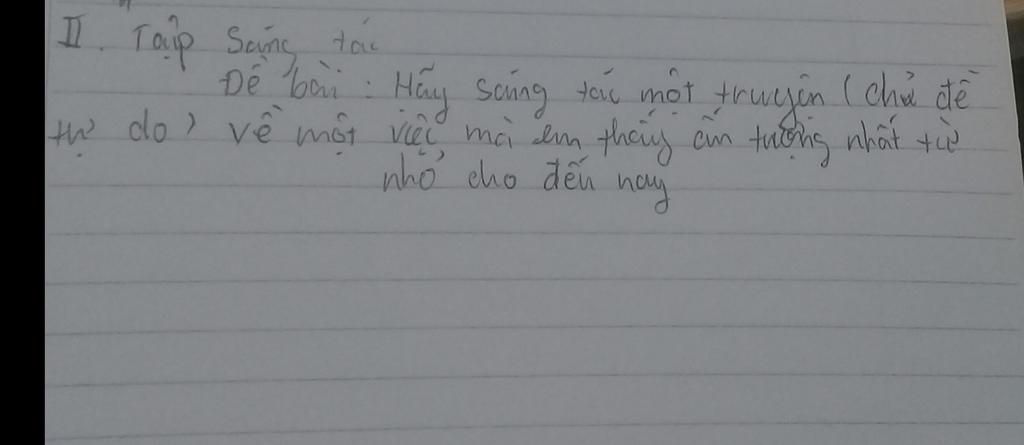 II. Tập sáng tác
Đề bài: Hãy sáng tác một truyện (chủ đề
tự do) về một việc mà em thấy ấn tượng nhất từ
nhỏ cho đến nay